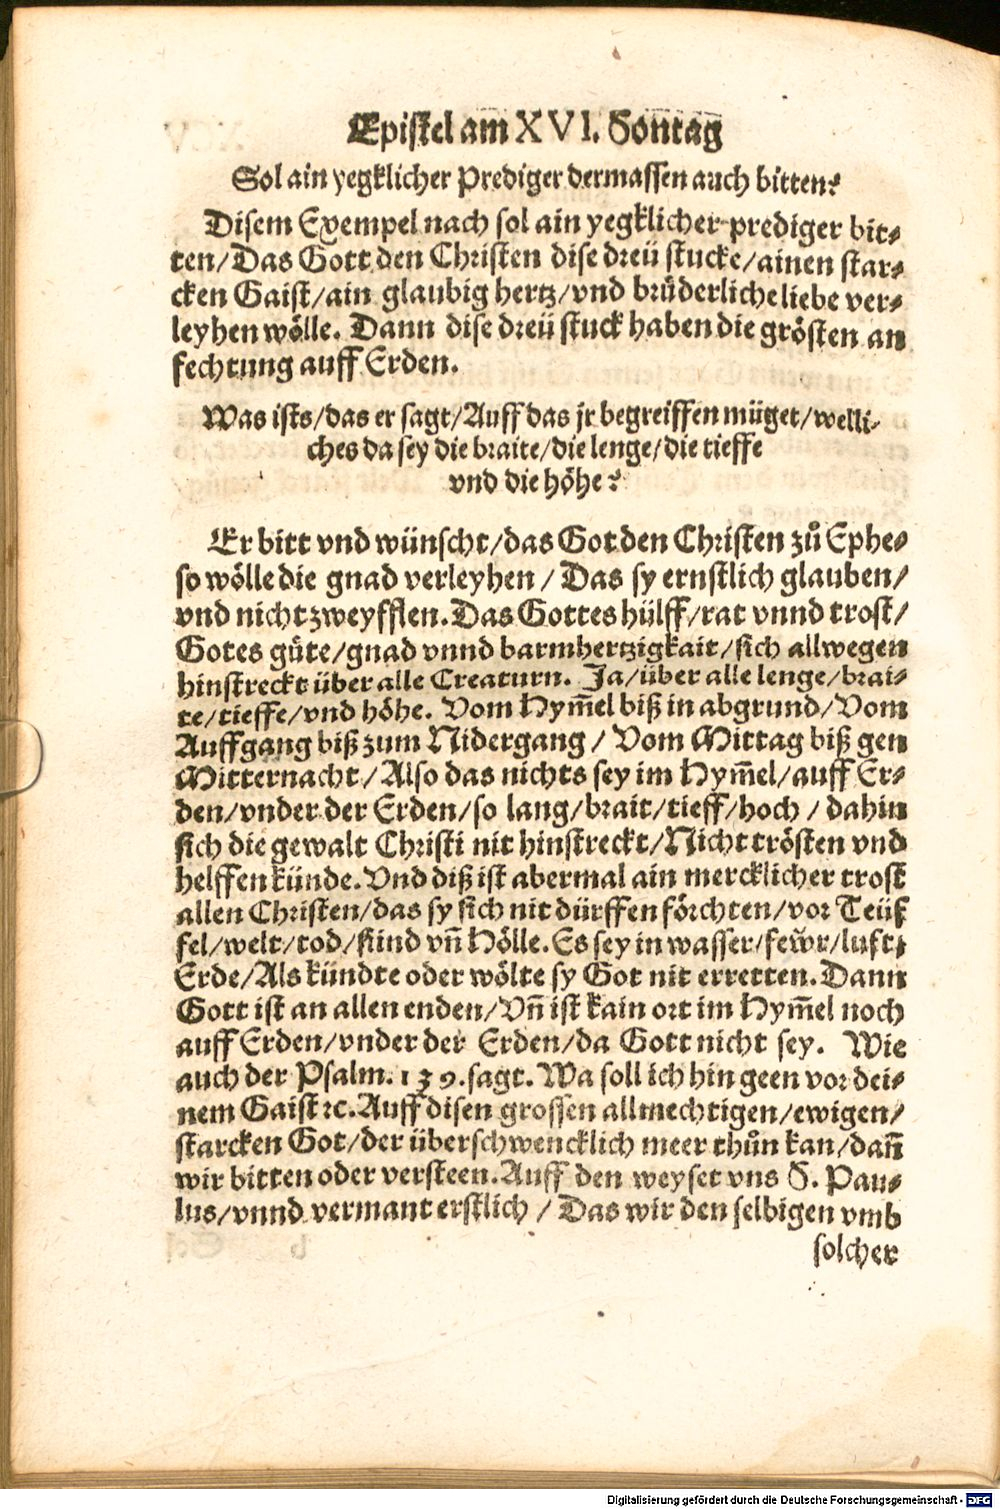 Epistel am XVI. Sontag
Sol ain yegklicher Prediger dermassen auch bitten?
Disem Exempel nach sol ain yegklicher prediger bit⸗
ten/Das Gott den Christen dise dreü stucke/ainen star⸗
cken Gaist/ain glaubig hertz/vnd brüderliche liebe ver⸗
leyhen wölle. Dann dise dreü stuck haben die grösten an
fechtung auff Erden.
Was ists/das er sagt/Auff das jr begreiffen müget/welli⸗
ches da sey die braite/die lenge/die tieffe
vnd die höhe?
Er bitt vnd wünscht/das Got den Christen zů Ephe⸗
so wölle die gnad verleyhen/Das sy ernstlich glauben/
vnd nicht zweyfflen. Das Gottes hülff/rat vnnd trost/
Gotes güte/gnad vnnd barmhertzigkait/sich allwegen
hinstreckt über alle Creaturn. Ja/über alle lenge/brai⸗
te/tieffe/vnd höhe. Vom Hym̄el biß in abgrund/Vom
Auffgang biß zum Nidergang/Vom Mittag biß gen
Mitternacht/Also das nichts sey im Hym̄el/auff Er⸗
den/vnder der Erden/so lang/brait/tieff/hoch/dahin
sich die gewalt Christi nit hinstreckt/Nicht trösten vnd
helffen künde. Vnd diß ist abermal ain mercklicher trost
allen Christen/das sy sich nit dürffen förchten/vor Teüf
fel/welt/tod/sünd vn̄ Hölle. Es sey in wasser/fewr/luft/
Erde/Als kündte oder wölte sy Got nit erretten. Dann
Gott ist an allen enden/Vn̄ ist kain ort im Hym̄el noch
auff Erden/vnder der Erden/da Gott nicht sey. Wie
auch der Psalm. 139. sagt. Wa soll ich hin geen vor dei⸗
nem Gaist ꝛc. Auff disen grossen allmechtigen/ewigen/
starcken Got/der überschwencklich meer thůn kan/dan̄
wir bitten oder versteen. Auff den weyset vns S. Pau⸗
lus/vnnd vermant erstlich/Das wir den selbigen vmb
solcher
Digitalisierung gefördert durch die Deutsche Forschungsgemeinschaft - DFG